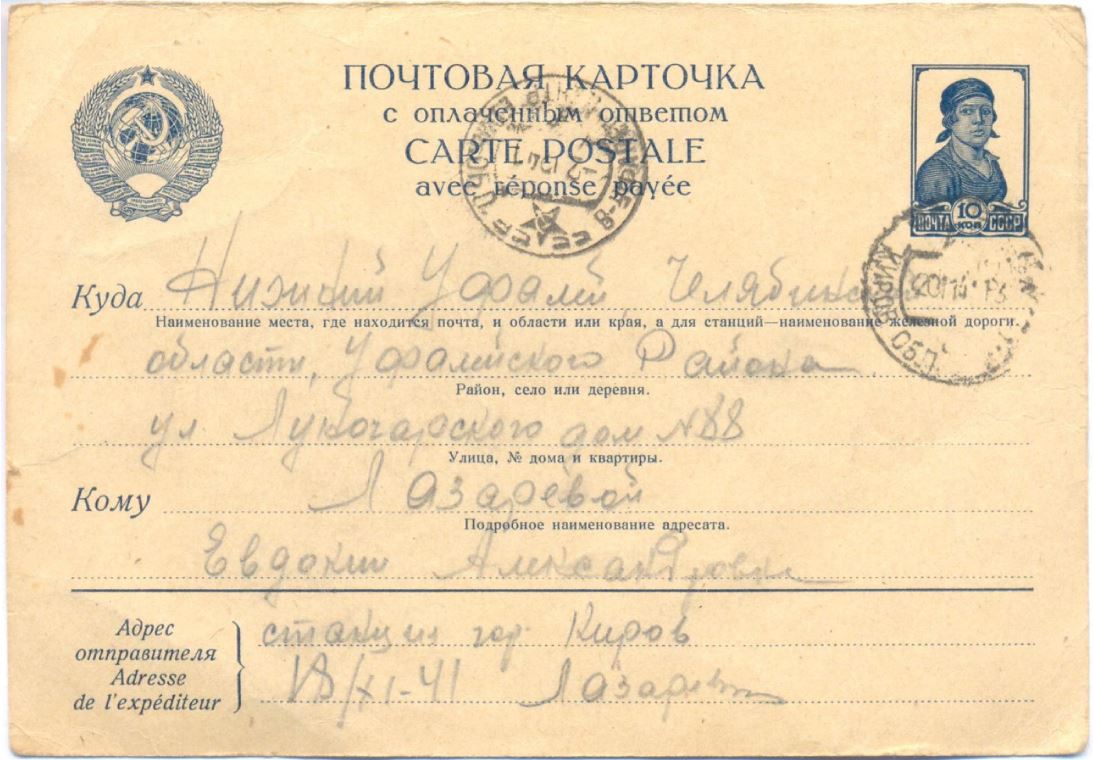 ПОЧТОВАЯ КАРТОЧКА
с оплаченным ответом
CARTE POSTALE
avec réponse payée
ПОЧТА 10 КОП СССР
Куда Нижний Уфалей Челябинс
Наименование места, где находится почта, и области или края, а для станций—наименование железной дороги.
области, Уфалейского Района
Район, село или деревня.
ул Луночарского дом N88
Улица, № дома и квартиры.
Кому Лазаревой
Подробное наименование адресата.
Евдокии Александровне
Адрес
отправителя
Adresse
de l'expéditeur
станция гор. Киров
18/XI-41 Лазарев
КИРОВ ОБЛ.